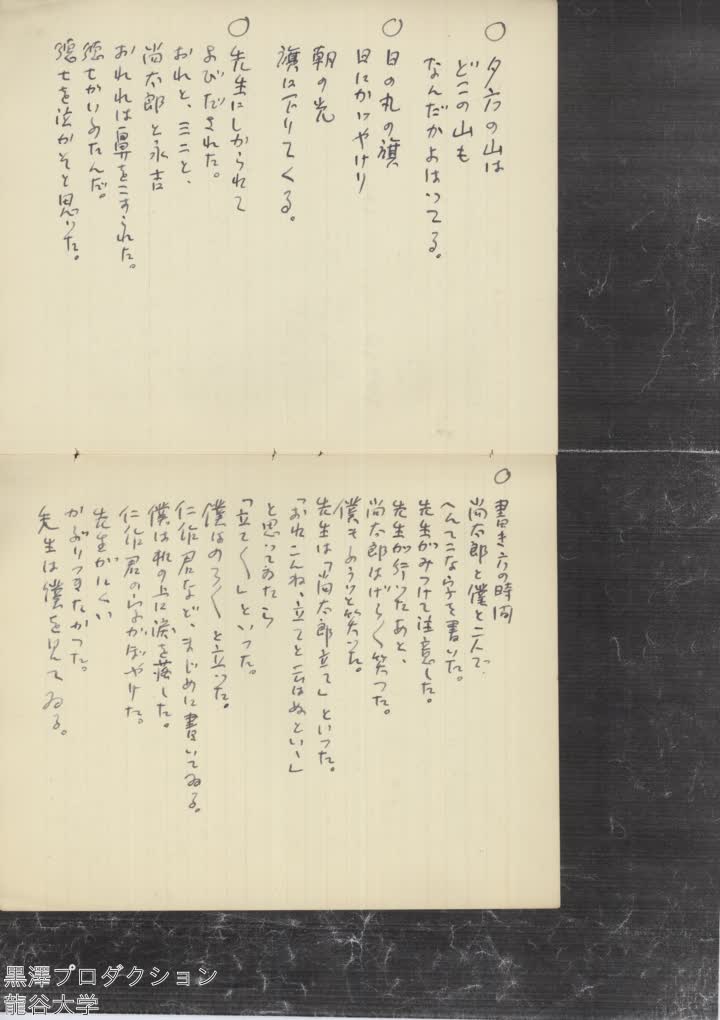 ○
夕方の山は
どこの山も
なんだかよはつてる。
○
日の丸の旗
日にかがやけり
朝の光
旗に下りてくる。
○
先生にしかられて
よびだされた。
おれと、ミニと、
尚太郎と永吉
おれれは鼻をこすられた。
徳士がいゝたんだ。
徳士を泣かそと思つた。
○
書き方の時間
尚太郎と僕と二人で
へんてこな字を書いた。
先生がみつけて注意した。
先生が行つたあと、
尚太郎はげら〱笑つた。
僕も笑つた。
先生は「尚太郎立て」といつた。
「おれこんね、立てと云はぬといゝ」
と思つてゐたら
「立て〱」といつた。
僕はのろ〱と立つた。
仁作君など、まじめに書いてゐる。
僕は机の上に涙を落した。
仁作君の字がぼやけた。
先生がにくい
かぶりつきたかつた。
先生は僕を見てゐる。
黒澤プロダクション
龍谷大学